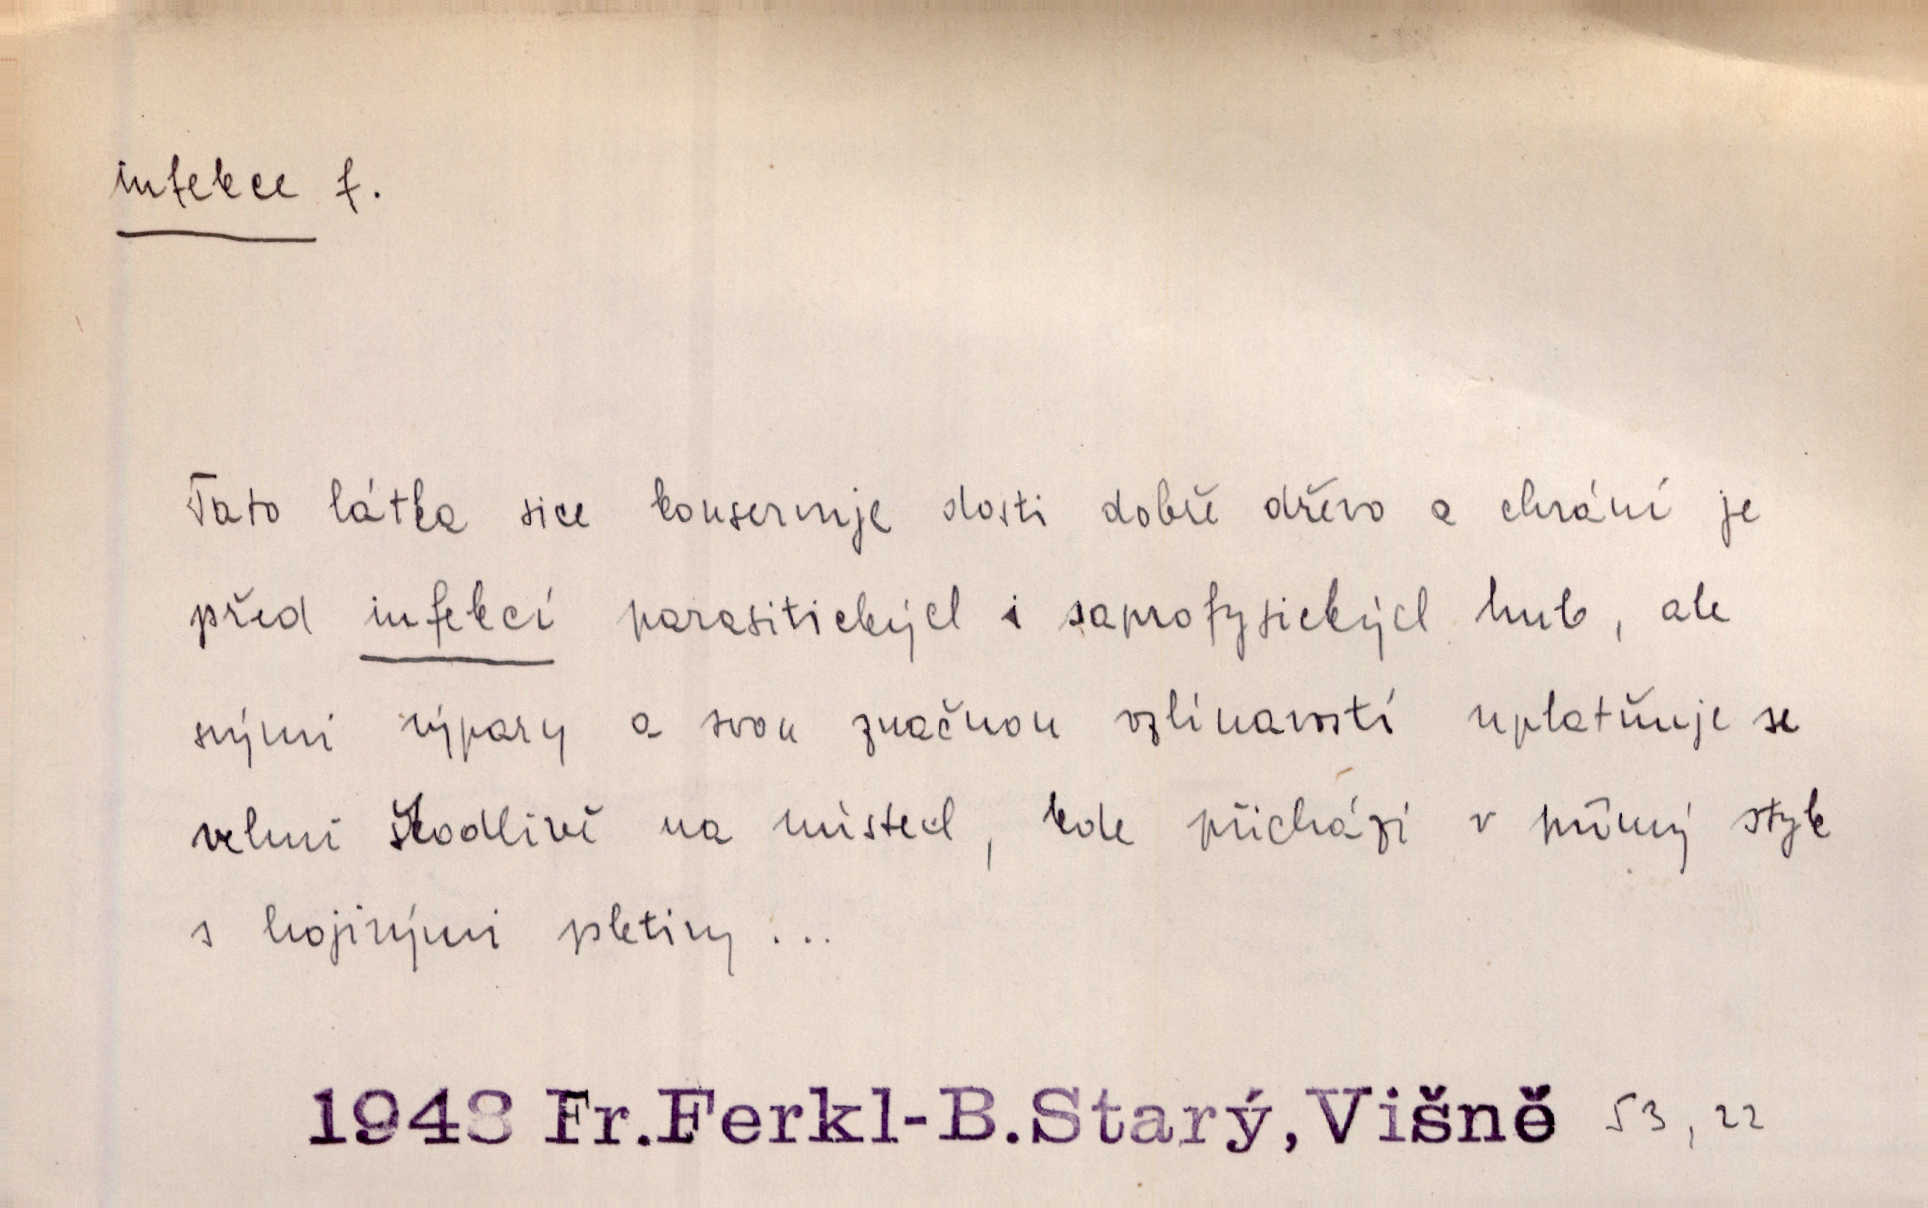 infekce f.
Tato látka sice konservuje dosti dobře dřevo a chrání je
před infekcí parasitických i saprofysických hub, ale
svými výpary a svou značnou vzlínavostí uplatňuje se
velmi škodlivě na místech, kde přichází v přímý styk
s hojivými pletivy ...
1948 Fr.Ferkl-B.Starý,Višně 53, 22